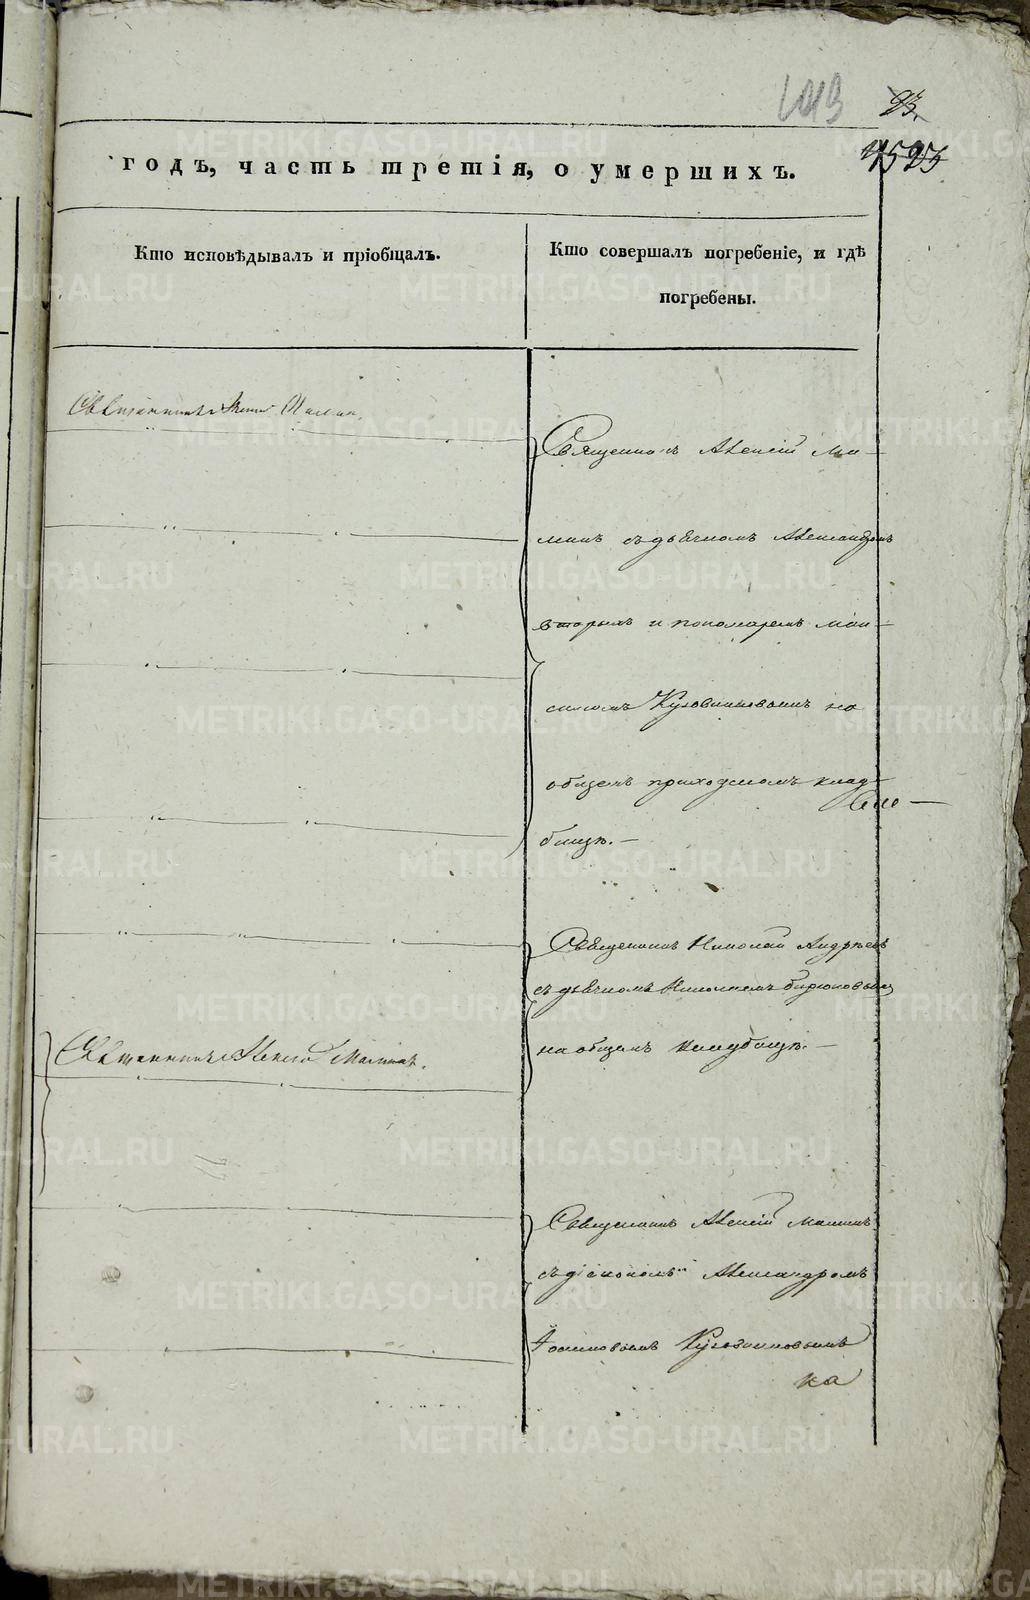 1013
93.
годъ, часть третія, о умершихъ.
Кто исповѣдывалъ и пріобщалъ.
Кто совершалъ погребеніе, и гдѣ
погребены.
Священникъ
Священникъ Алексій Ма-
минъ съ дьячкомъ Александромъ
вторымъ и пономаремъ
Кузовниковымъ на
общемъ приходскомъ клад-
бищѣ.—
Священникъ Николай Андреевъ
съ дьячкомъ Николаемъ Бирюковымъ
на общемъ кладбищѣ.—
Священникъ Алексій Маминъ.
Священникъ Алексій Маминъ
съ діакономъ Александромъ
Кузовниковымъ
на
METRIKI.GASO-URAL.RU